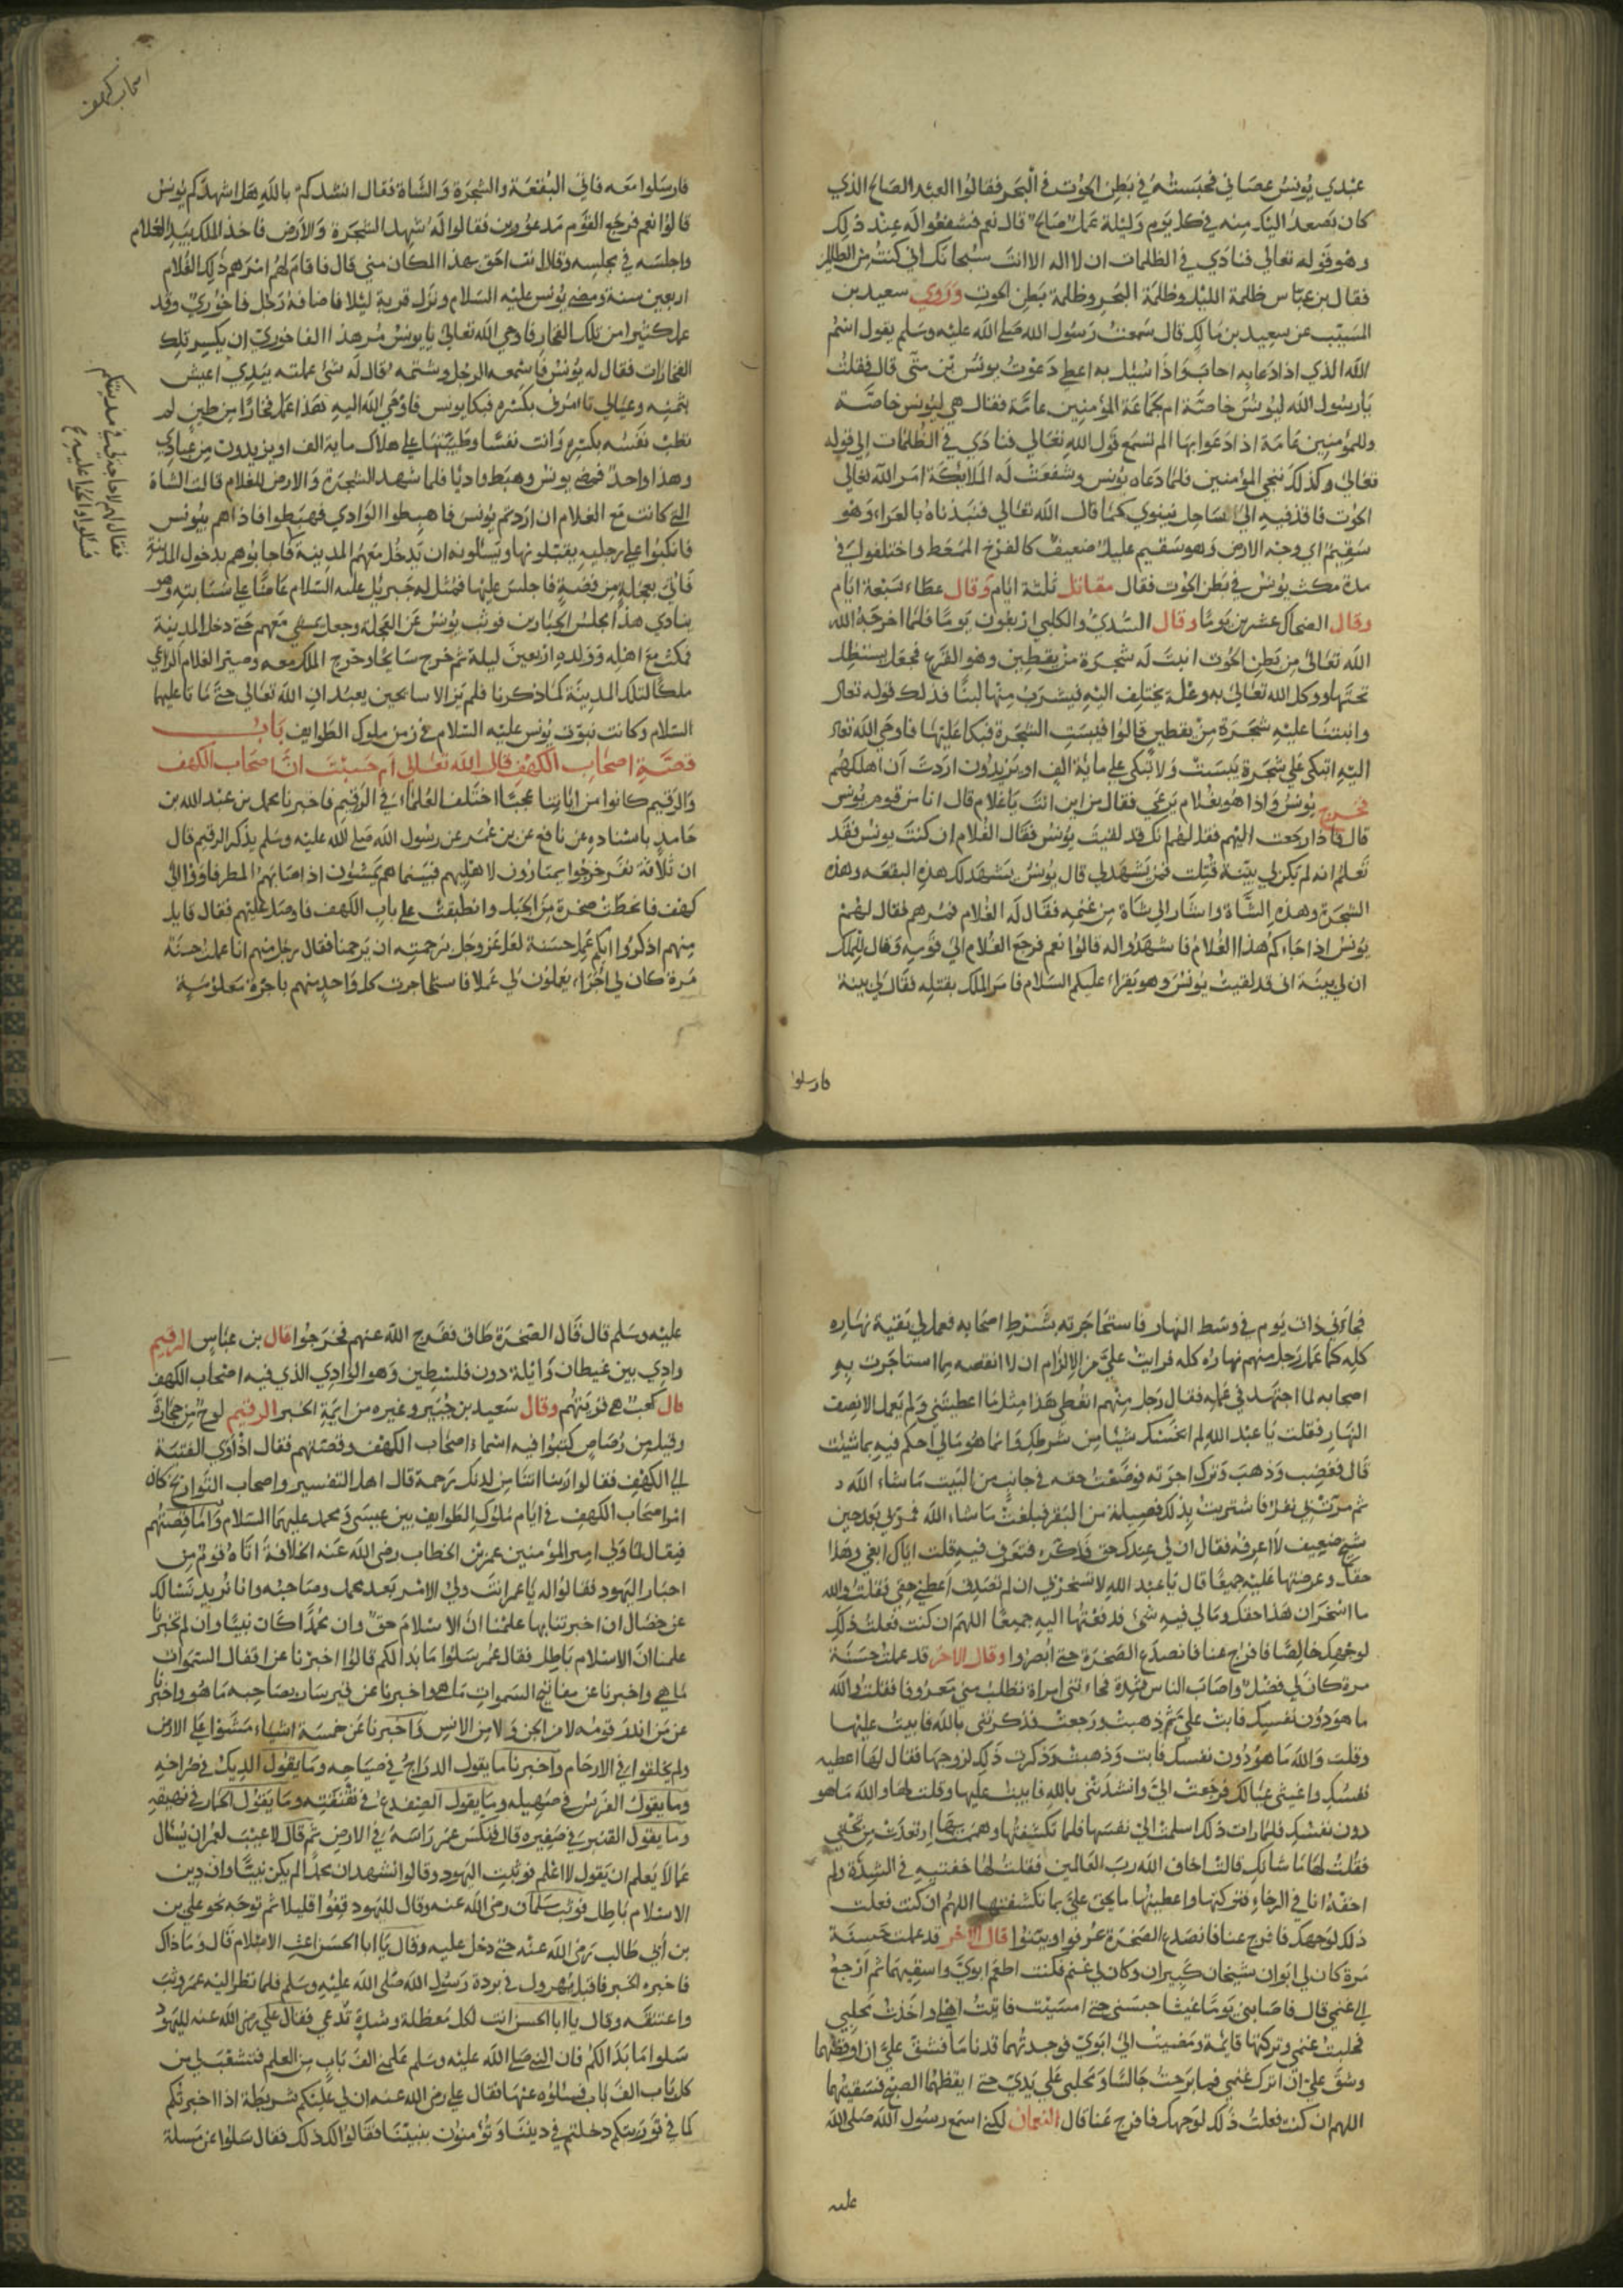 عبدي يونس عصاني فحبسته في بطن الحوت في البحر فقالوا العبد الصالح الذي
كان يصعد اليك منه في كل يوم وليلة عمل صالح قال نعم فشفعوا له عند ذلك
وهو قوله تعالى فنادى في الظلمات ان لا اله الا انت سبحانك اني كنت من الظالمين
فقال بن عباس ظلمة الليل وظلمة البحر وظلمة بطن الحوت وروي سعيد بن
المسيب عن سعيد بن مالك قال سمعت رسول الله صلى الله عليه وسلم يقول اسم
الله الذي اذا دعا به اجاب واذا سئل به اعطى دعوت يونس بن متى قال فقلت
يا رسول الله ليونس خاصة ام لجماعة المؤمنين عامة فقال هي ليونس خاصة
وللمؤمنين عامة اذا دعوا بها الم تسمع قول الله تعالى فنادى في الظلمات الى قوله
تعالى وكذلك ننجي المؤمنين فلما دعاه يونس وشفعت له الملائكة امر الله تعالى
الحوت فاقذفيه الى الساحل نينوي كما قال الله تعالى فنبذناه بالعراء وهو
سقيم اي وجه الارض وهو سقيم عليل ضعيف كالفرخ الممعط واختلفوا في
مدة مكث يونس في بطن الحوت فقال مقاتل ثلثة ايام وقال عطاء سبعة ايام
وقال الضحاك عشرين يوما وقال السدي والكلبي اربعون يوما فلما اخرجه الله
الله تعالى من بطن الحوت انبت له شجرة من يقطين وهو القرع فجعل يستظل
تحتها ووكل الله تعالى به وعلة يختلف اليه فيشرب منها لبنا فذلك قوله تعالى
وانبتنا عليه شجرة من يقطين قالوا فيبست الشجرة فبكا عليها فاوحى الله تعالى
اليه اتبكي على شجرة يبست ولا تبكي على ماية الف او يزيدون اردت ان اهلكهم
فخرج يونس واذا هو بغلام يرعي فقال من اين انت يا غلام قال انا من قوم يونس
قال فاذا رجعت اليهم فقل لهم انك قد لقيت يونس فقال الغلام ان كنت يونس فقد
تعلم انه لم يكن لي بينة قتلت فمن يشهد لي قال يونس يشهد لك هذه البقعه وهذه
الشجرة وهذه الشاة واشار الى شاة من غنمه فقال له الغلام فمرهم فقال لهم
يونس اذا جاءكم هذا الغلام فاشهدوا له قالوا نعم فرجع الغلام الى قومه وقال للملك
ان لي بينة اني قد لقيت يونس وهو يقراء عليكم السلام فامر الملك بقتله فقال لي بينة
فارسلوا
اصحاب كهف
فارسلوا معه فاتي البقعة والشجرة والشاة فقال انشدكم بالله هل اشهدكم يونس
قالوا نعم فرجع القوم مذعورين فقالوا له شهد الشجرة والارض فاخذ الملك بيد الغلام
واجلسه في مجلسه وقال انت احق بهذا المكان مني قال فاقام لهم امرهم ذلك الغلام
اربعين سنة ومضى يونس عليه السلام ونزل قرية ليلا فاضافه رجل فاخوري وقد
عمل كثيرا من تلك الفخار فاوحى الله تعالى يا يونس مر هذا الفاخوري ان يكسر تلك
الفخارات فقال له يونس فاسمعه الرجل وشتمه وقال له شئ عملته بيدي اعيش
بثمنه وعيالي تامرني بكسره فبكا يونس فاوحى الله اليه هذا عمل فخارا من طين لم
تطب نفسه بكسره وانت نفسا وطيبتها على هلاك ماية الف او يزيدون من عبادي
وهذا واحد فمضى يونس وهبط واديا فلما شهد الشجرة والارض للغلام قالت الشاة
التي كانت مع الغلام ان اردتم يونس فاهبطوا الوادي فهبطوا فاذا هم بيونس
فانكبوا على رجليه يقبلونها ويسألونه ان يدخل معهم المدينة فاجابوهم بدخول المدينة
فاتي بعجلة من فضة فاجلس عليها فمثل له جبريل عليه السلام عاضا على سبابته وهو
ينادي هذا مجلس الجبارين فوثب يونس عن العجلة وجعل يمشي معهم حتى دخل المدينة
فمكث مع اهله وولده اربعين ليلة ثم خرج سايحا وخرج الملك معه وصير الغلام الراعي
ملكا لتلك المدينة كما ذكرنا فلم يزالا سايحين يعبدان الله تعالى حتى ماتا عليهما
السلام وكانت نبوة يونس عليه السلام في زمن ملوك الطوايف باب
قصة اصحاب الكهف قال الله تعالى ام حسبت ان اصحاب الكهف
والرقيم كانوا من اياتنا عجبا اختلف العلماء في الرقيم فاخبرنا محمد بن عبد الله بن
حامد باسناده عن نافع عن بن عمر عن رسول الله صلى الله عليه وسلم يذكر الرقيم قال
ان ثلاثة نفر خرجوا يمتارون لاهليهم فبينما هم يمشون اذ اصابهم المطر فاووا الى
كهف فانحطت صخرة من الجبل وانطبقت على باب الكهف فاوصد عليهم فقال قايل
منهم اذكروا ايكم عمل حسنة لعل عز وجل برحمته ان يرحمنا فقال رجل منهم انا عملت حسنة
مرة كان لي اجراء يعملون لي عملا فاستاجرت كل واحد منهم باجرة معلومة
فقال لهم لا حاجة لي في مدينتكم
فسلوا والحوا عليه
فجاءني ذات يوم في وسط النهار فاستاجرته بشرط اصحابه فعمل لي بقية نهاره
كله كما عمل رجل منهم نهاره كله فرايت علي من الالزام ان لا انقصه مما استاجرت به
اصحابه لما اجتهد في عمله فقال رجل منهم اتعطي هذا مثل ما اعطيتني ولم يعمل الا نصف
النهار فقلت يا عبد الله لم ابخسك شيئا من شرطك وانما هو مالي احكم فيه بما شئت
قال فغضب وذهب وترك اجرته فوضعت حقه في جانب من البيت ما شاء الله
ثم مرت بي بقر فاشتريت بذلك فصيلة من البقر فبلغت ما شاء الله فمر بي بعد حين
شيخ ضعيف لا اعرفه فقال ان لي عندك حق فذكره فتعرف فيه قلت اياك ابغي وهذا
حقك وعرضتها عليه جميعا قال يا عبد الله لا تسخر بي ان لم تصدق اعطني حقي فقلت والله
ما اسخر ان هذا حقك ومالي فيه شئ فدفعتها اليه جميعا اللهم ان كنت فعلت ذلك
لوجهك خالصا فافرج عنا فانصدع الصخرة حتى ابصروا وقال الاخر قد عملت حسنة
مرة كان لي فضل واصاب الناس شدة فجاءتني امراة تطلب مني معروفا فقلت والله
ما هو دون نفسك فابت علي ثم ذهبت ورجعت فذكرتني بالله فابيت عليها
وقلت والله ما هو دون نفسك فابت وذهبت وذكرت ذلك لزوجها فقال لها اعطيه
نفسك واغيثي عيالك فرجعت الي وانشدتني بالله فابيت عليها وقلت لها والله ما هو
دون نفسك فلما رات ذلك اسلمت الي نفسها فلما تكشفتها وهممت بها ارتعدت من تحتي
فقلت لها ما شانك قالت اخاف الله رب العالمين فقلت لها خفتيه في الشدة ولم
اخفه انا في الرخاء فتركتها واعطيتها ما يحق علي بما تكشفتها اللهم ان كنت فعلت
ذلك لوجهك فافرج عنا فانصدع الصخرة عرفوا وبينوا قال الاخر قد عملت حسنة
مرة كان لي ابوان شيخان كبيران وكان لي غنم فكنت اطعم ابوي واسقيهما ثم ارجع
الى غنمي قال فاصابني يوما غيث حبسني حتى امسيت فاتيت اهلي واخذت محلبي
فحلبت غنمي وتركتها قايمة ومضيت الى ابوي فوجدتهما قد ناما فشق علي ان اوقظهما
وشق علي ان اترك غنمي فما برحت جالسا ومحلبي على يدي حتى ايقظهما الصبح فسقيتهما
اللهم ان كنت فعلت ذلك لوجهك فافرج عنا قال النعمان لكني اسمع رسول الله صلى الله
عليه
عليه وسلم قال قال الصخرة طاق ففرج الله عنهم فخرجوا قال بن عباس الرقيم
وادي بين غيطان وايلة دون فلسطين وهو الوادي الذي فيه اصحاب الكهف
قال كعب هي قريتهم وقال سعيد بن جبير وغيره من ايمة الخبر الرقيم لوح من حجارة
وقيل من رصاص كتبوا فيه اسماء اصحاب الكهف وقصتهم فقال اذ اوى الفتية
الى الكهف فقالوا ربنا اتنا من لدنك رحمة قال اهل التفسير واصحاب التواريخ كان
امر اصحاب الكهف في ايام ملوك الطوايف بين عيسى ومحمد عليهما السلام واما قصتهم
فيقال لما ولي امير المؤمنين عمر بن الخطاب رضى الله عنه الخلافة اتاه قوم من
احبار اليهود فقالوا له يا عمر انت ولي الامر بعد محمد وصاحبه وانا نريد نسالك
عن خصال ان اخبرتنا بها علمنا ان الاسلام حق وان محمدا كان نبيا وان لم تخبرنا
علمنا ان الاسلام باطل فقال عمر سلوا ما بدا لكم قالوا اخبرنا عن اقفال السموات
ما هي واخبرنا عن مفاتيح السموات ما هو واخبرنا عن قبر سار بصاحبه ما هو واخبرنا
عن من انذر قومه لا من الجن ولا من الانس واخبرنا عن خمسة اشياء مشوا على الارض
ولم يخلقوا في الارحام واخبرنا ما يقول الدراج في صياحه وما يقول الديك في صراخه
وما يقول الفرس في صهيله وما يقول الضفدع في نقنقته وما يقول الحمار في نهيقه
وما يقول القنبر في صفيره قال فنكس عمر راسه في الارض ثم قال لا عيب لعمر ان يسأل
عما لا يعلم ان يقول لا اعلم فوثبت اليهود وقالوا نشهد ان محمدا لم يكن نبيا وان دين
الاسلام باطل فوثب سلمان رضى الله عنه وقال لليهود قفوا قليلا ثم توجه نحو علي بن
بن أبي طالب رضى الله عنه حتى دخل عليه وقال يا ابا الحسن اغث الاسلام قال وما ذاك
فاخبره الخبر فاقبل يهرول في بردة رسول الله صلى الله عليه وسلم فلما نظر اليه عمر وثب
واعتنقه وقال يا ابا الحسن انت لكل معظلة وشدة تدعي فقال علي رضى الله عنه لليهود
سلوا ما بدا لكم فان النبي صلى الله عليه وسلم علمني الف باب من العلم فتشعب لي من
كل باب الف باب فسلوه عنها فقال علي رضى الله عنه ان لي عليكم شريطة اذا اخبرتكم
كما في توريتكم دخلتم في ديننا وتؤمنون بنبينا فقالوا لك ذلك فقال سلوا عن مسلة